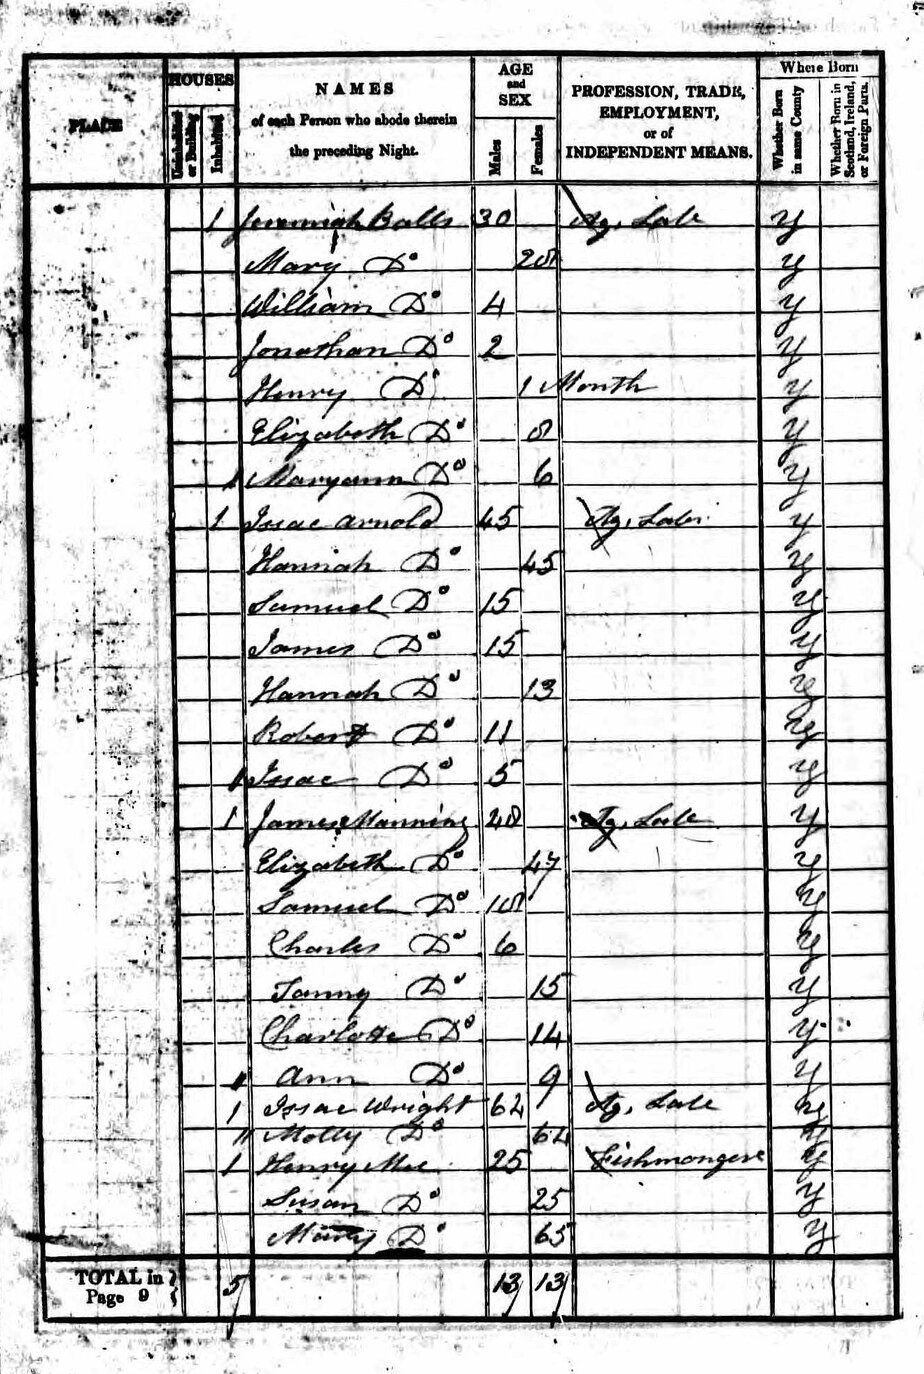 PLACE
HOUSES
Uninhabited or Building
Inhabited
NAMES
of each Person who abode therein
the preceding Night.
AGE
and
SEX
Males
Females
PROFESSION, TRADE,
EMPLOYMENT,
or of
INDEPENDENT MEANS.
Where Born
Whether Born in same County
Whether Born in Scotland, Ireland, or Foreign Parts.
1 Jeremiah Balls 30 Ag, Lab Y
Mary Do 28 Y
William Do 4 Y
Jonathan Do 2 Y
Henry Do 1 Month Y
Elizabeth Do 8 Y
Maryann Do 6 Y
1 Issac Arnold 45 Ag, Lab Y
Hannah Do 45 Y
Samuel Do 15 Y
James Do 15 Y
Hannah Do 13 Y
Robert Do 11 Y
Issac Do 5 Y
1 James Manning 48 Ag, Lab Y
Elizabeth Do 47 Y
Samuel Do 18 Y
Charles Do 6 Y
Do 15 Y
Charlotte Do 14 Y
Ann Do 9 Y
1 Issac Wright 62 Ag, Lab Y
Molly Do 62 Y
1 Henry 25 Fishmonger Y
Susan Do 25 Y
Do 65 Y
TOTAL in
Page 9
5 13 13